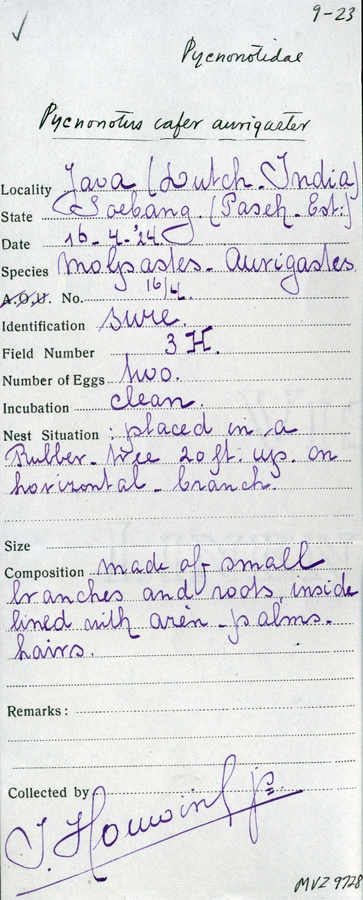 ✓
9-23
Pycnonotidae
Pycnonotus cafer aurigaster
Locality Java (Dutch-India)
State Soebang (Paseh-Est:)
Date 16-4-'24
Species Molpastes-Aurigastes
A.O.U. No. 16/4.
Identification sure.
Field Number 3 H.
Number of Eggs two.
Incubation clean.
Nest Situation : placed in a
Rubber-tree 20 ft. up. on
horizontal-branch.
Size
Composition made of small
branches and roots, inside
lined with arèn-palms-
hairs.
Remarks:
Collected by
MVZ 9728